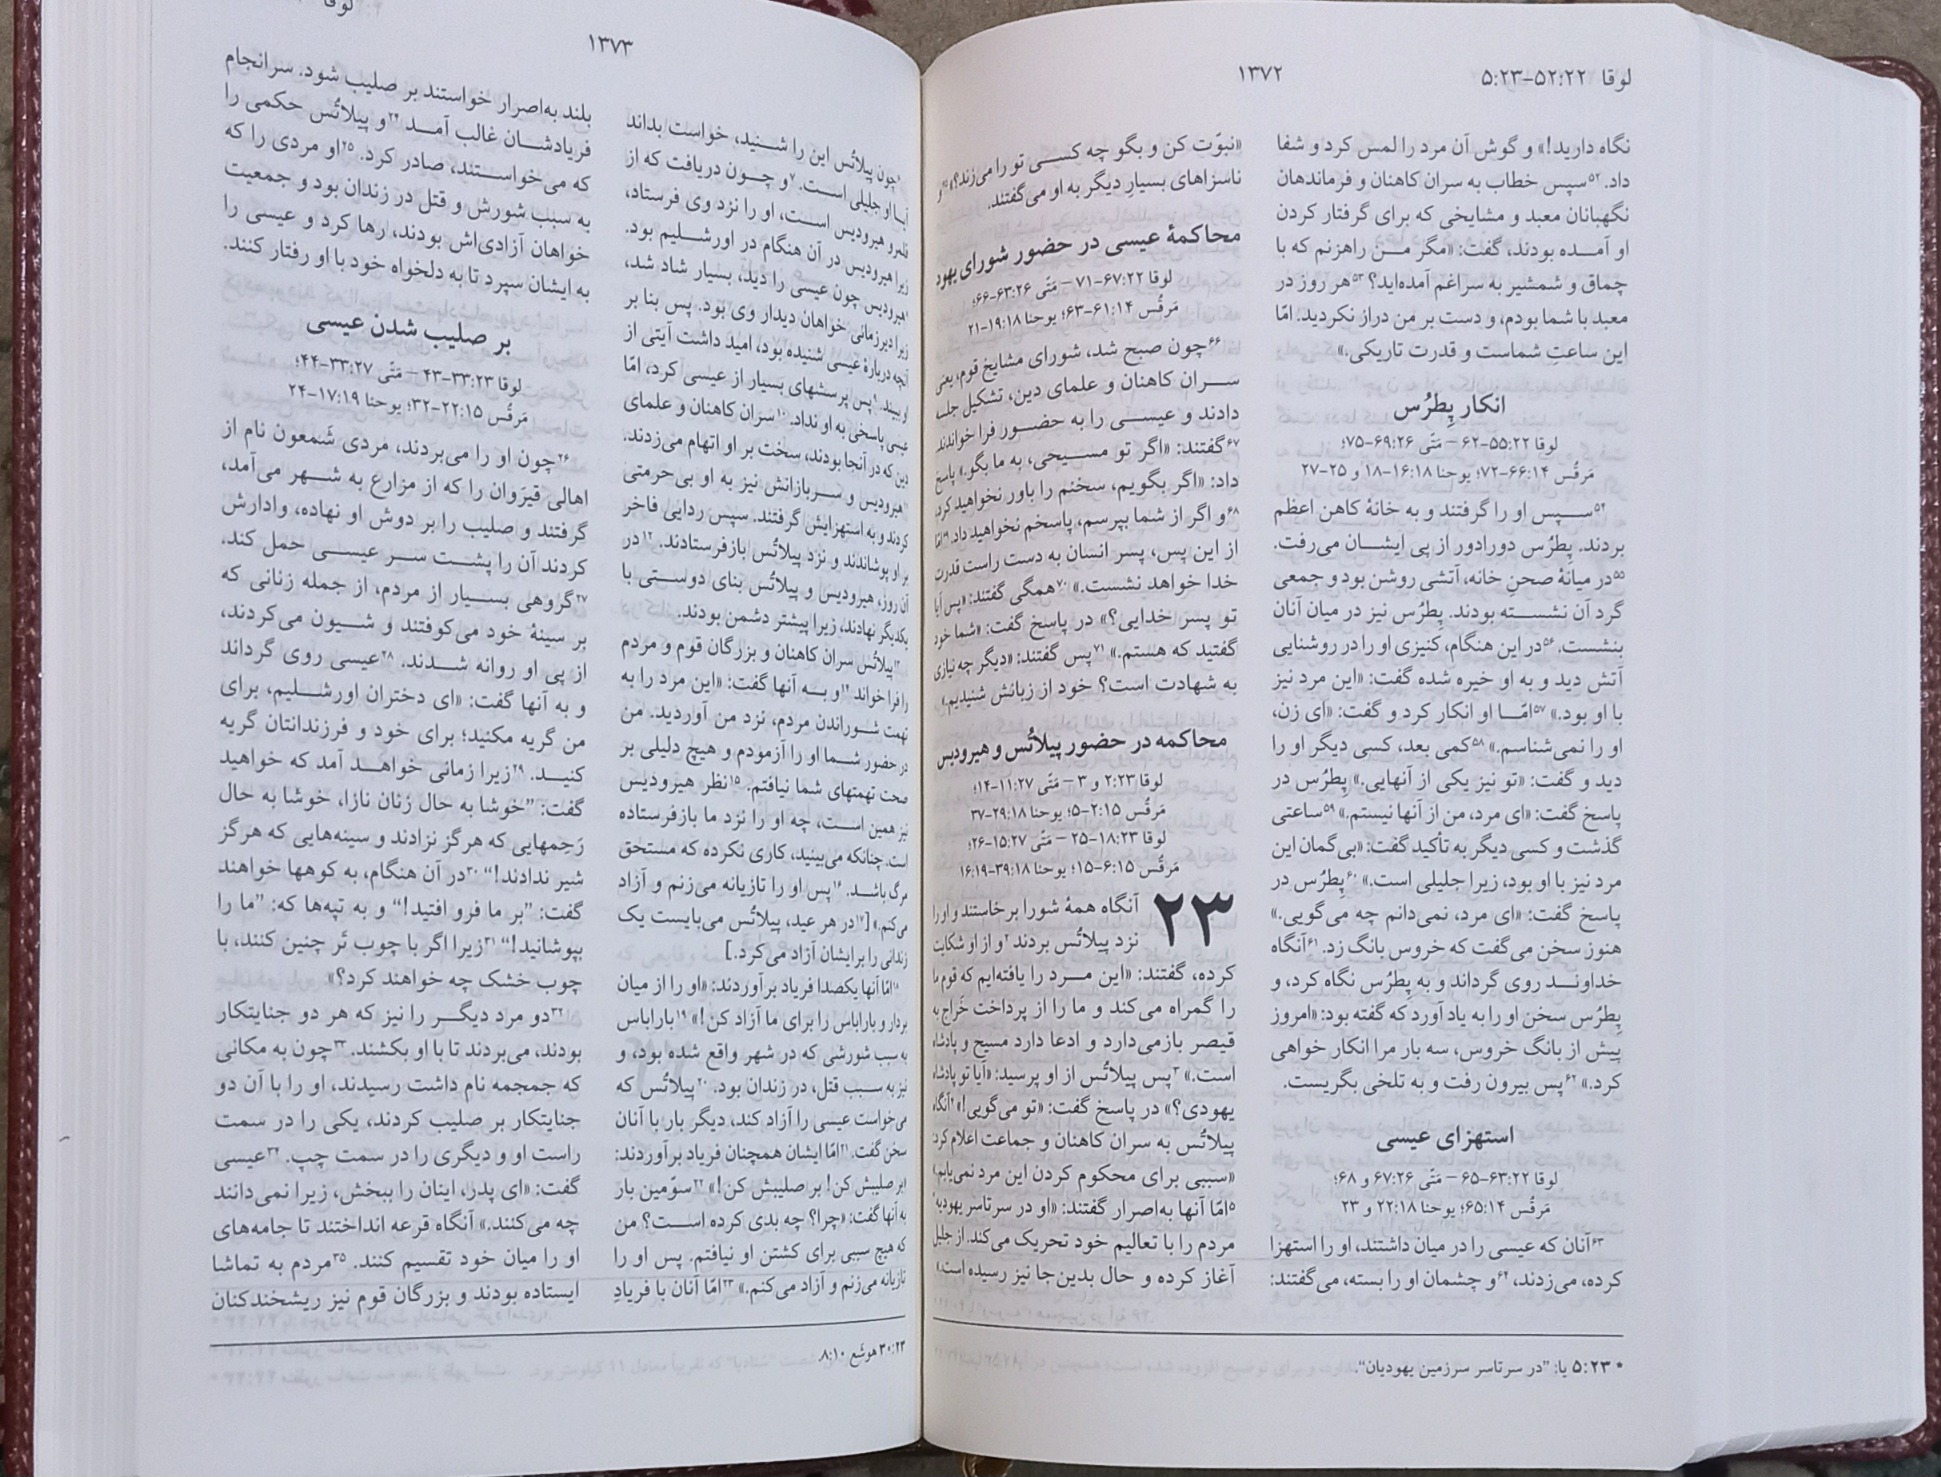 لوقا ۵۲:۲۲-۵:۲۳
۱۳۷۲
نگاه دارید!» و گوش آن مرد را لمس کرد و شفا
داد. ۵۲سپس خطاب به سران کاهنان و فرماندهان
نگهبانان معبد و مشایخی که برای گرفتار کردن
او آمده بودند، گفت: «مگر من راهزنم که با
چماق و شمشیر به سراغم آمده‌اید؟ ۵۳هر روز در
معبد با شما بودم، و دست بر من دراز نکردید. امّا
این ساعتِ شماست و قدرت تاریکی.»
انکار پِطرُس
لوقا ۵۵:۲۲-۶۲ – مَتّی ۶۹:۲۶-۷۵؛
مَرقُس ۶۶:۱۴-۷۲؛ یوحنا ۱۶:۱۸-۱۸ و ۲۵-۲۷
۵۴سپس او را گرفتند و به خانهٔ کاهن اعظم
بردند. پِطرُس دورادور از پی ایشان می‌رفت.
۵۵در میانهٔ صحنِ خانه، آتشی روشن بود و جمعی
گرد آن نشسته بودند. پِطرُس نیز در میان آنان
بنشست. ۵۶در این هنگام، کنیزی او را در روشنایی
آتش دید و به او خیره شده گفت: «این مرد نیز
با او بود.» ۵۷امّا او انکار کرد و گفت: «ای زن،
او را نمی‌شناسم.» ۵۸کمی بعد، کسی دیگر او را
دید و گفت: «تو نیز یکی از آنهایی.» پِطرُس در
پاسخ گفت: «ای مرد، من از آنها نیستم.» ۵۹ساعتی
گذشت و کسی دیگر به تأکید گفت: «بی‌گمان این
مرد نیز با او بود، زیرا جلیلی است.» ۶۰پِطرُس در
پاسخ گفت: «ای مرد، نمی‌دانم چه می‌گویی.»
هنوز سخن می‌گفت که خروس بانگ زد. ۶۱آنگاه
خداوند روی گرداند و به پِطرُس نگاه کرد، و
پِطرُس سخن او را به یاد آورد که گفته بود: «امروز
پیش از بانگ خروس، سه بار مرا انکار خواهی
کرد.» ۶۲پس بیرون رفت و به تلخی بگریست.
استهزای عیسی
لوقا ۶۳:۲۲-۶۵ – مَتّی ۶۷:۲۶ و ۶۸؛
مَرقُس ۶۵:۱۴؛ یوحنا ۲۲:۱۸ و ۲۳
۶۳آنان که عیسی را در میان داشتند، او را استهزا
کرده، می‌زدند، ۶۴و چشمان او را بسته، می‌گفتند:
«نبوّت کن و بگو چه کسی تو را می‌زند؟» ۶۵و
ناسزاهای بسیارِ دیگر به او می‌گفتند.
محاکمهٔ عیسی در حضور شورای یهود
لوقا ۶۷:۲۲-۷۱ – مَتّی ۶۳:۲۶-۶۶؛
مَرقُس ۶۱:۱۴-۶۳؛ یوحنا ۱۹:۱۸-۲۱
۶۶چون صبح شد، شورای مشایخ قوم، یعنی
سران کاهنان و علمای دین، تشکیل جلسه
دادند و عیسی را به حضور فرا خواندند.
۶۷گفتند: «اگر تو مسیحی، به ما بگو.» پاسخ
داد: «اگر بگویم، سخنم را باور نخواهید کرد،
۶۸و اگر از شما بپرسم، پاسخم نخواهید داد. ۶۹امّا
از این پس، پسر انسان به دست راست قدرت
خدا خواهد نشست.» ۷۰همگی گفتند: «پس آیا
تو پسر خدایی؟» در پاسخ گفت: «شما خود
گفتید که هستم.» ۷۱پس گفتند: «دیگر چه نیازی
به شهادت است؟ خود از زبانش شنیدیم.»
محاکمه در حضور پیلاتُس و هیرودیس
لوقا ۲:۲۳ و ۳ – مَتّی ۱۱:۲۷-۱۴؛
مَرقُس ۲:۱۵-۵؛ یوحنا ۲۹:۱۸-۳۷
لوقا ۱۸:۲۳-۲۵ – مَتّی ۱۵:۲۷-۲۶؛
مَرقُس ۶:۱۵-۱۵؛ یوحنا ۳۹:۱۸-۱۶:۱۹
۲۳ آنگاه همهٔ شورا برخاستند و او را
نزد پیلاتُس بردند ۲و از او شکایت
کرده، گفتند: «این مرد را یافته‌ایم که قوم ما
را گمراه می‌کند و ما را از پرداخت خَراج به
قیصر بازمی‌دارد و ادعا دارد مسیح و پادشاه
است.» ۳پس پیلاتُس از او پرسید: «آیا تو پادشاه
یهودی؟» در پاسخ گفت: «تو می‌گویی!» ۴آنگاه
پیلاتُس به سران کاهنان و جماعت اعلام کرد:
«سببی برای محکوم کردن این مرد نمی‌یابم.»
۵امّا آنها به‌اصرار گفتند: «او در سرتاسر یهودیه*
مردم را با تعالیم خود تحریک می‌کند. از جلیل
آغاز کرده و حال بدین‌جا نیز رسیده است.»
* ۵:۲۳ یا: ”در سرتاسر سرزمین یهودیان“.
لوقا
۱۳۷۳
۶چون پیلاتُس این را شنید، خواست بداند
آیا او جلیلی است. ۷و چون دریافت که از
قلمرو هیرودیس است، او را نزد وی فرستاد،
زیرا هیرودیس در آن هنگام در اورشلیم بود.
۸هیرودیس چون عیسی را دید، بسیار شاد شد،
زیرا دیرزمانی خواهان دیدار وی بود. پس بنا بر
آنچه دربارهٔ عیسی شنیده بود، امید داشت آیتی از
او ببیند. ۹پس پرسشهای بسیار از عیسی کرد، امّا
عیسی پاسخی به او نداد. ۱۰سران کاهنان و علمای
دین که در آنجا بودند، سخت بر او اتهام می‌زدند.
۱۱هیرودیس و سربازانش نیز به او بی‌حرمتی
کردند و به استهزایش گرفتند. سپس ردایی فاخر
بر او پوشاندند و نزد پیلاتُس بازفرستادند. ۱۲در
آن روز، هیرودیس و پیلاتُس بنای دوستی با
یکدیگر نهادند، زیرا پیشتر دشمن بودند.
۱۳پیلاتُس سران کاهنان و بزرگان قوم و مردم
را فرا خواند ۱۴و به آنها گفت: «این مرد را به
تهمت شوراندن مردم، نزد من آوردید. من
در حضور شما او را آزمودم و هیچ دلیلی بر
صحت تهمتهای شما نیافتم. ۱۵نظر هیرودیس
نیز همین است، چه او را نزد ما بازفرستاده
است. چنانکه می‌بینید، کاری نکرده که مستحق
مرگ باشد. ۱۶پس او را تازیانه می‌زنم و آزاد
می‌کنم.» [۱۷در هر عید، پیلاتُس می‌بایست یک
زندانی را برایشان آزاد می‌کرد.]
۱۸امّا آنها یکصدا فریاد برآوردند: «او را از میان
بردار و باراباس را برای ما آزاد کن!» ۱۹باراباس
به سبب شورشی که در شهر واقع شده بود، و
نیز به سبب قتل، در زندان بود. ۲۰پیلاتُس که
می‌خواست عیسی را آزاد کند، دیگر بار با آنان
سخن گفت. ۲۱امّا ایشان همچنان فریاد برآوردند:
«بر صلیبش کن! بر صلیبش کن!» ۲۲سوّمین بار
به آنها گفت: «چرا؟ چه بدی کرده است؟ من
که هیچ سببی برای کشتن او نیافتم. پس او را
تازیانه می‌زنم و آزاد می‌کنم.» ۲۳امّا آنان با فریادِ
بلند به‌اصرار خواستند بر صلیب شود. سرانجام
فریادشان غالب آمد ۲۴و پیلاتُس حکمی را
که می‌خواستند، صادر کرد. ۲۵او مردی را که
به سبب شورش و قتل در زندان بود و جمعیت
خواهان آزادی‌اش بودند، رها کرد و عیسی را
به ایشان سپرد تا به دلخواه خود با او رفتار کنند.
بر صلیب شدن عیسی
لوقا ۳۳:۲۳-۴۳ – مَتّی ۳۳:۲۷-۴۴؛
مَرقُس ۲۲:۱۵-۳۲؛ یوحنا ۱۷:۱۹-۲۴
۲۶چون او را می‌بردند، مردی شَمعون نام از
اهالی قیرَوان را که از مزارع به شهر می‌آمد،
گرفتند و صلیب را بر دوش او نهاده، وادارش
کردند آن را پشت سر عیسی حمل کند.
۲۷گروهی بسیار از مردم، از جمله زنانی که
بر سینهٔ خود می‌کوفتند و شیون می‌کردند،
از پی او روانه شدند. ۲۸عیسی روی گرداند
و به آنها گفت: «ای دختران اورشلیم، برای
من گریه مکنید؛ برای خود و فرزندانتان گریه
کنید. ۲۹زیرا زمانی خواهد آمد که خواهید
گفت: ”خوشا به حال زنان نازا، خوشا به حال
رَحِمهایی که هرگز نزادند و سینه‌هایی که هرگز
شیر ندادند!“ ۳۰در آن هنگام، به کوهها خواهند
گفت: ”بر ما فرو افتید!“ و به تپه‌ها که: ”ما را
بپوشانید!“ ۳۱زیرا اگر با چوب تَر چنین کنند، با
چوب خشک چه خواهند کرد؟»
۳۲دو مرد دیگر را نیز که هر دو جنایتکار
بودند، می‌بردند تا با او بکشند. ۳۳چون به مکانی
که جمجمه نام داشت رسیدند، او را با آن دو
جنایتکار بر صلیب کردند، یکی را در سمت
راست او و دیگری را در سمت چپ. ۳۴عیسی
گفت: «ای پدر، اینان را ببخش، زیرا نمی‌دانند
چه می‌کنند.» آنگاه قرعه انداختند تا جامه‌های
او را میان خود تقسیم کنند. ۳۵مردم به تماشا
ایستاده بودند و بزرگان قوم نیز ریشخندکنان
۳۰:۲۳ هوشَع ۸:۱۰.